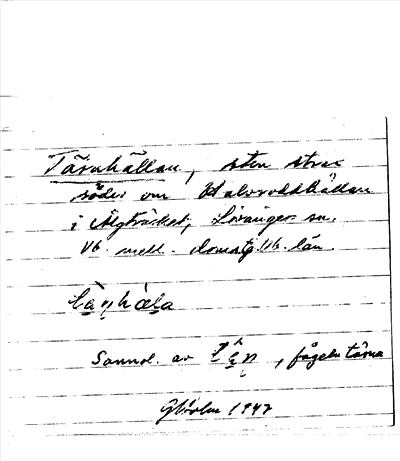 Tärnhällan, sten strax
söder om Halvordshällan
i Älgträsket, Lövånger sn.
Vb. mell. doms. Vb. län.
Sannol. av tä̂n, fågeln tärna
1947